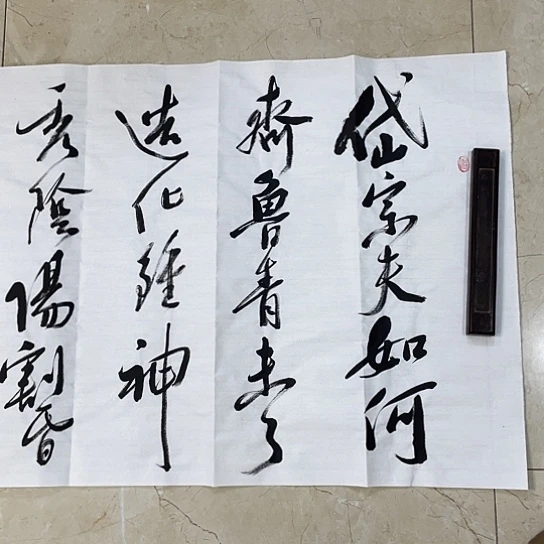 岱宗夫如何
齊魯青未了
造化鍾神
秀陰陽割昏